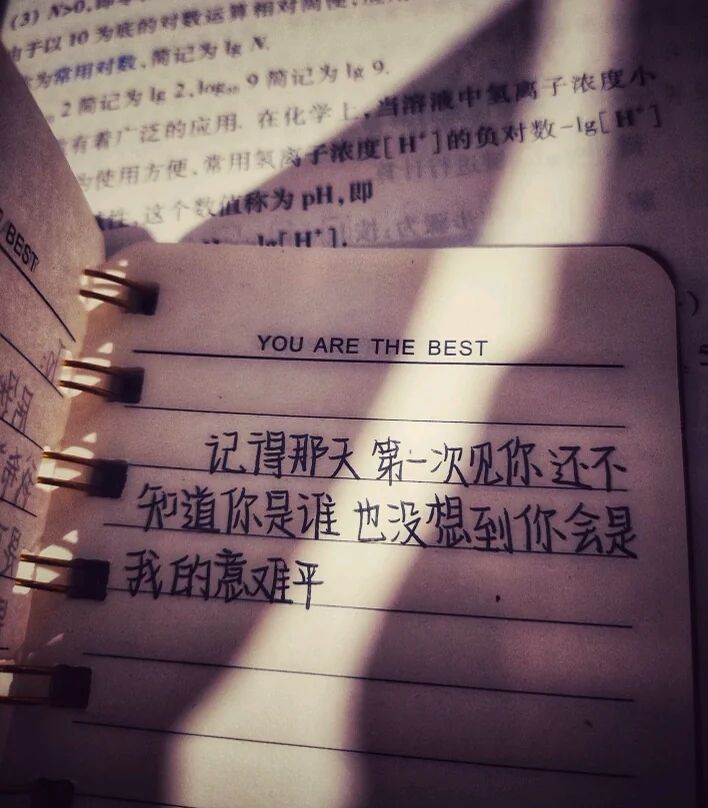 (3) N>0,
由于以 10 为底的对数运算相对简便,
为常用对数、简记为 lg N.
2 简记为 lg 2,log₁₀ 9 简记为 lg 9.
有着广泛的应用. 在化学上,当溶液中氢离子浓度小
使用方便,常用氢离子浓度[H⁺]的负对数-lg[H⁺]
性,这个数值称为 pH,即
lg[H⁺].
BEST
YOU ARE THE BEST
记得那天 第一次见你 还不
知道你是谁 也没想到你会是
我的意难平